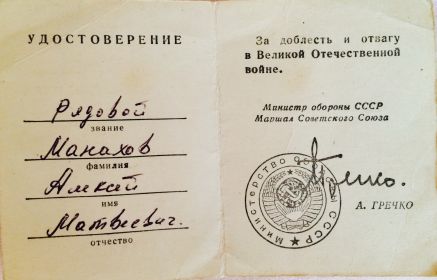 УДОСТОВЕРЕНИЕ
Рядовой
звание
Манахов
фамилия
Алексей
имя
Матвеевич.
отчество
За доблесть и отвагу
в Великой Отечественной
войне.
Министр обороны СССР
Маршал Советского Союза
Министерство обороны
СССР
А. ГРЕЧКО